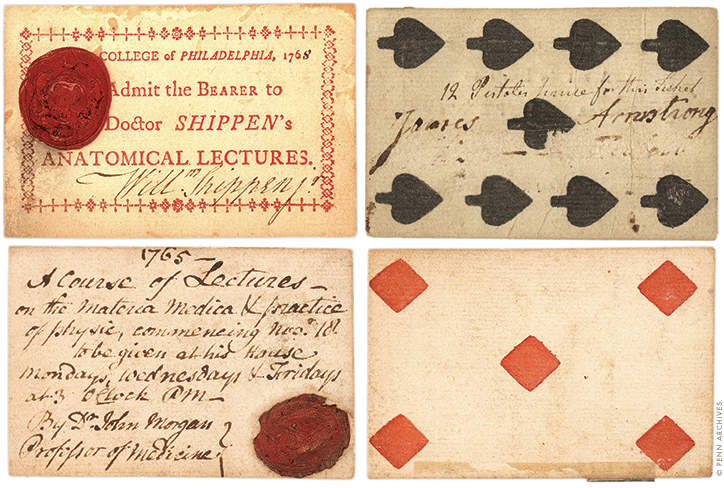 COLLEGE of PHILADELPHIA, 1768
Admit the BEARER to
Doctor SHIPPEN's
ANATOMICAL LECTURES.
Will.m Shippen jr
12 Pistoles price for this Ticket
James Armstrong
1765 –
A Course of Lectures –
on the Materia Medica & practice
of physic, commencing Nov.r 18.
to be given at his House
Mondays, Wednesdays & Fridays
at 3 O'Clock PM –
By Dr. John Morgan
Professor of Medicine
© PENN ARCHIVES